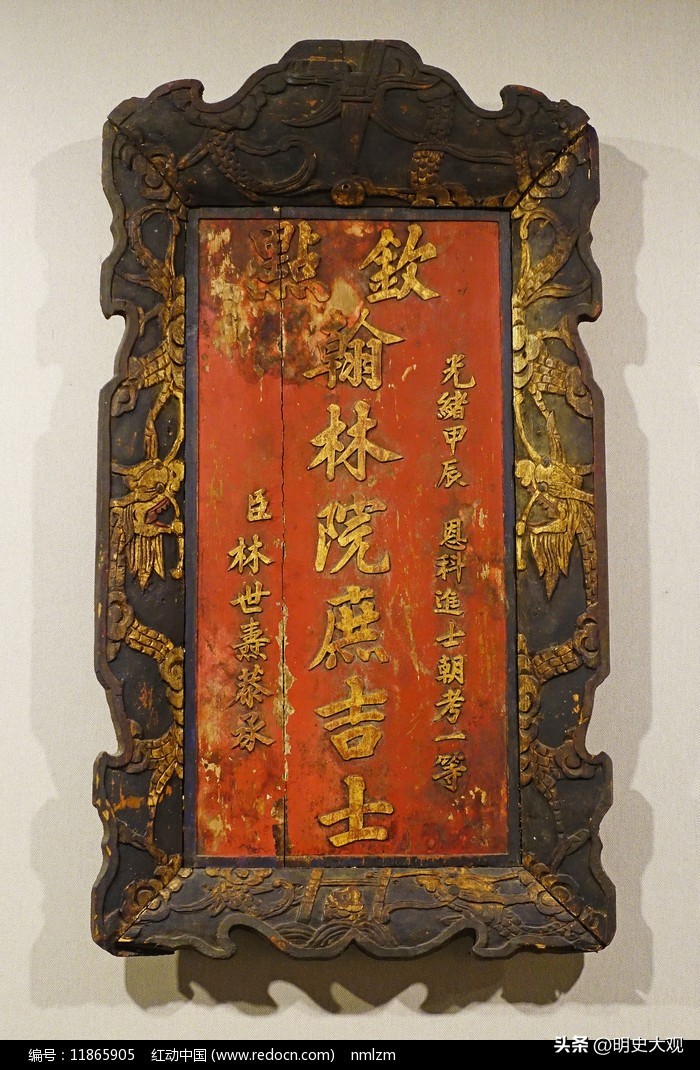 欽點
翰林院庶吉士
光緒甲辰 恩科進士朝考一等
臣林世燾恭承
编号：11865905 红动中国 (www.redocn.com) nmlzm
头条 @明史大观